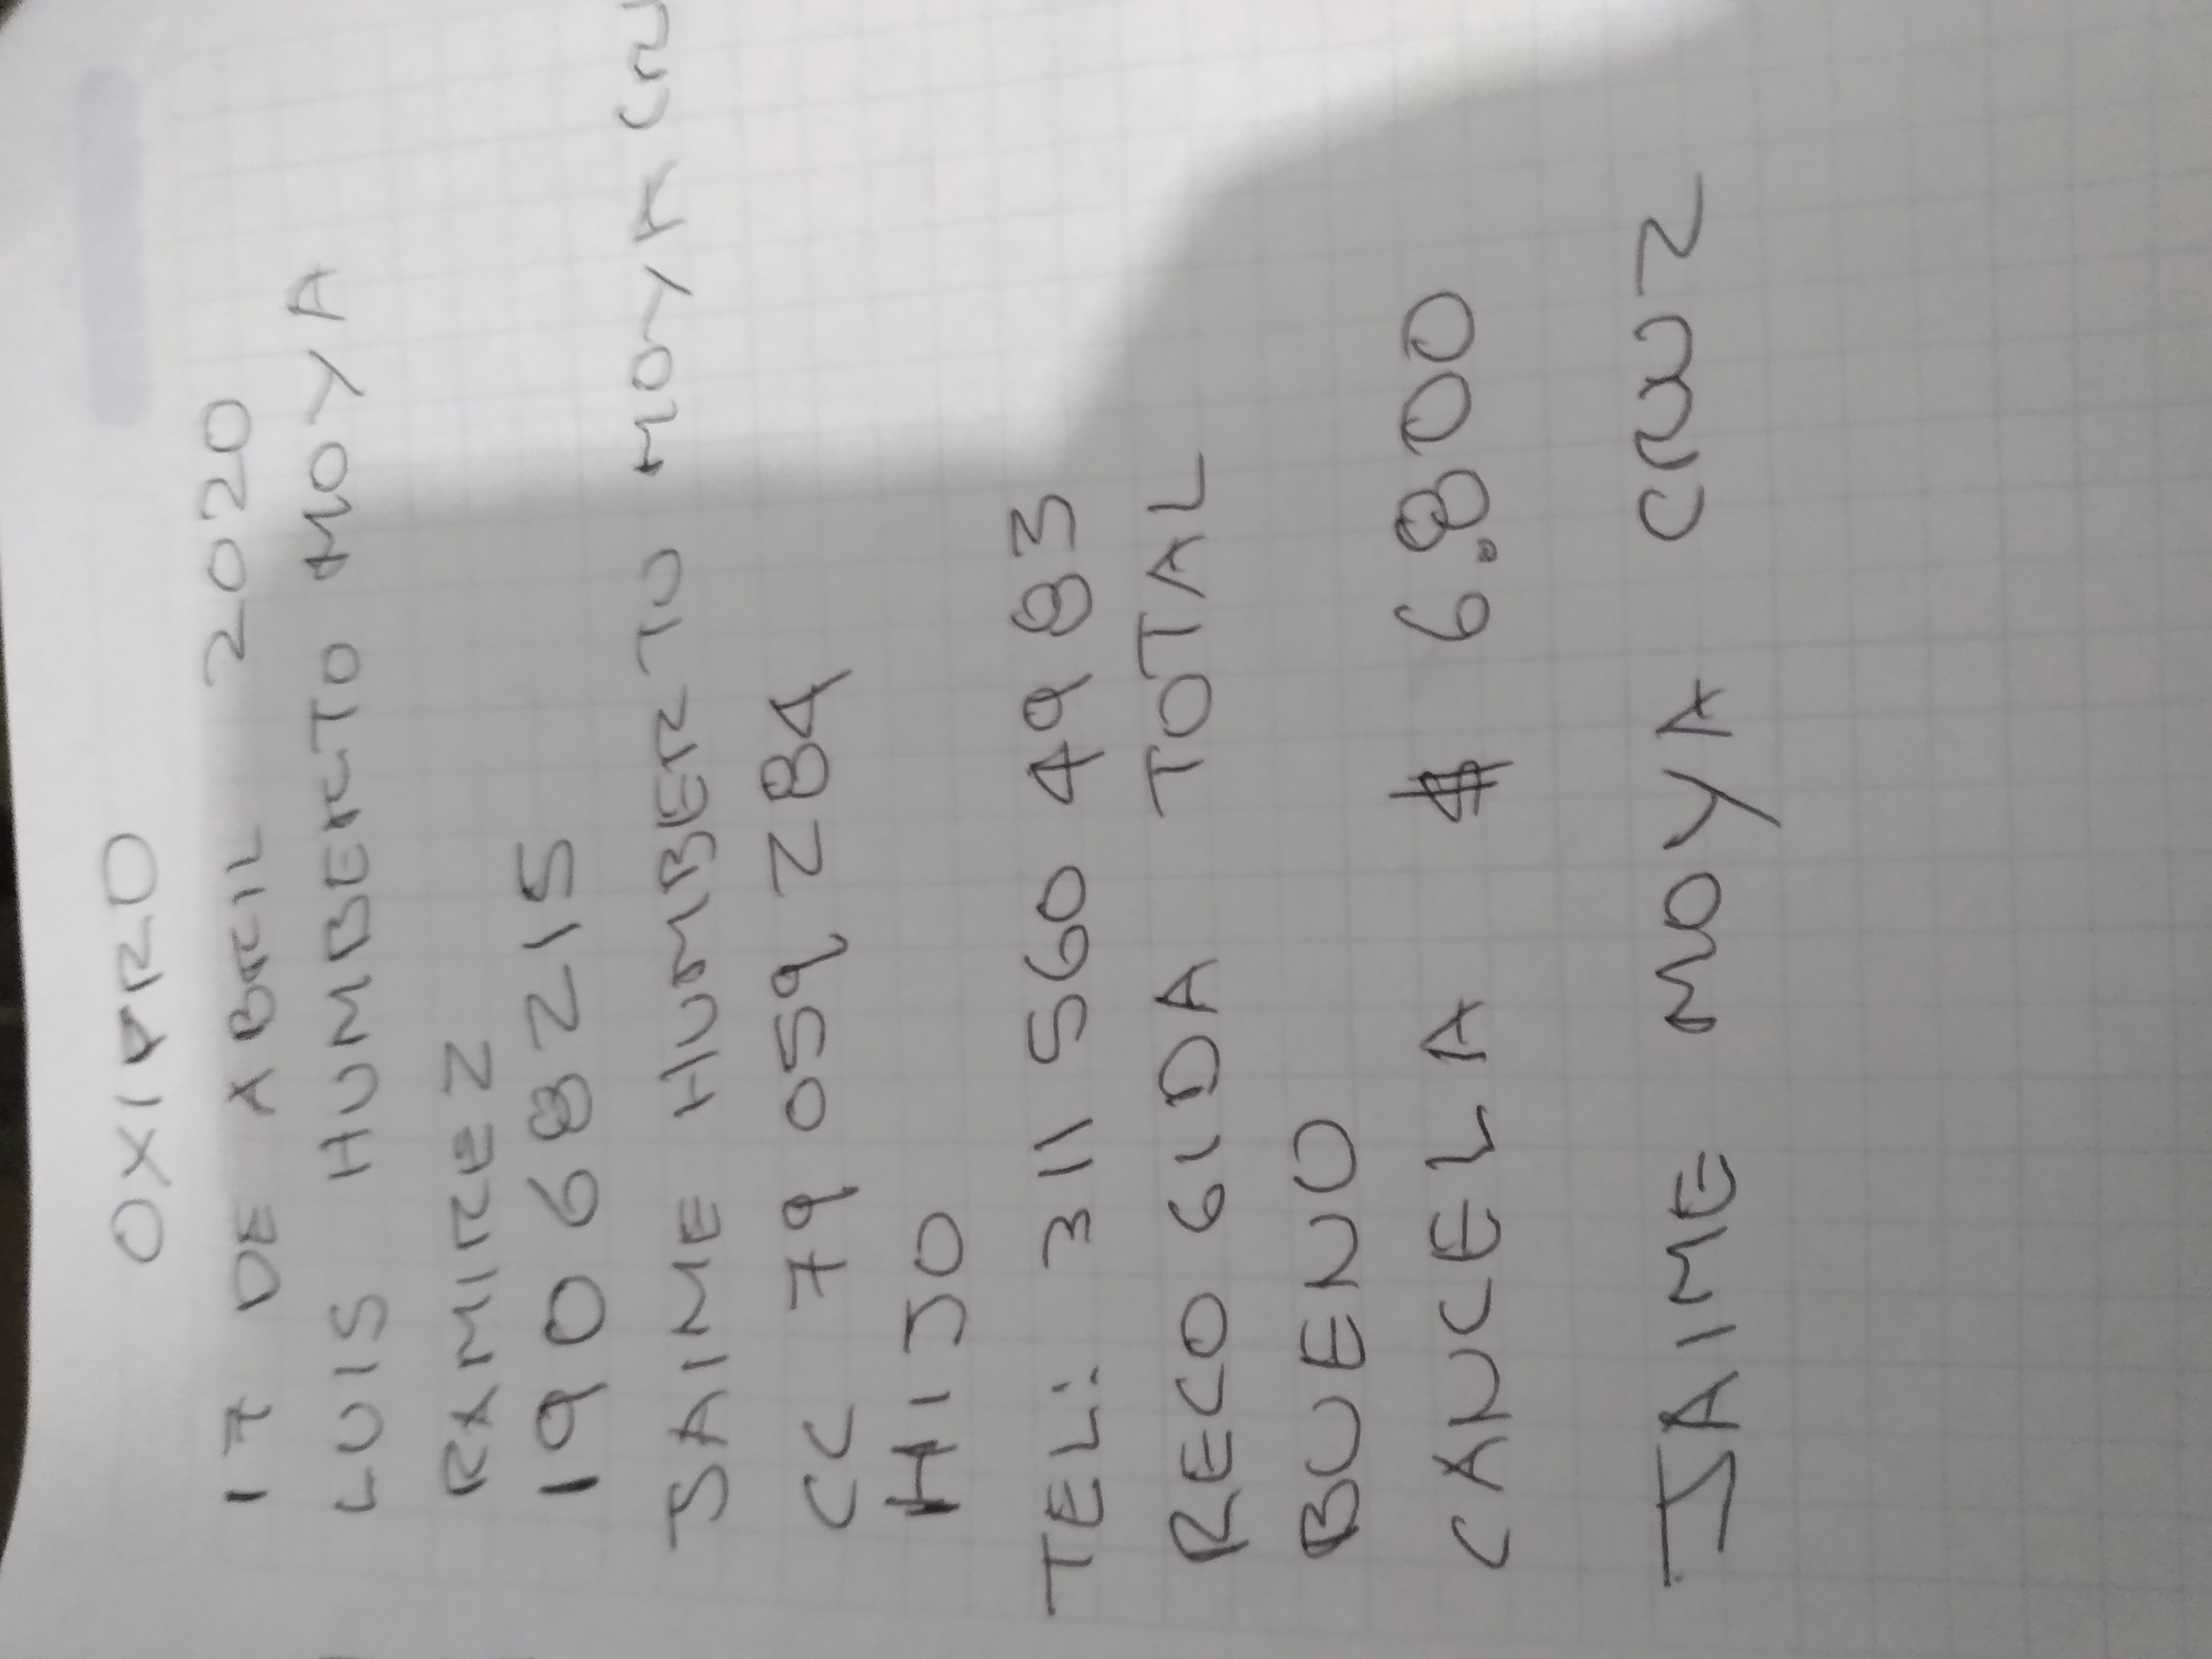 OXIPRO
17 DE ABRIL 2020
LUIS HUMBERTO MOYA
RAMIREZ
19068215
JAIME HUMBERTO MOYA CRU
CC 79 059 284
HIJO
TEL: 311 560 49 83
RECOGIDA TOTAL
BUENO
CANCELA $ 6.800
JAIME MOYA CRUZ